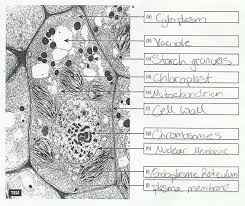 (a) Cytoplasm
(b) Vacuole
(c) Starch granules
(d) Chloroplast
(e) Mitochondrion
(f) Cell wall
(g) Chromosomes
(h) Nuclear Membrane
(i) Endoplasmic Reticulum
(j) plasma membrane
TEM